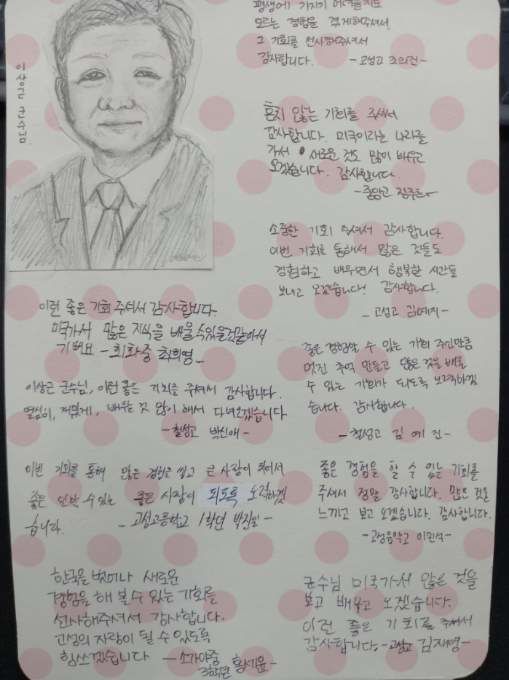 이상근 군수님
평생에 가지기 어려울지도
모르는 경험을 겪게해주셔서
그 기회를 선사해주셔서
감사합니다. -고성고
흔치 않은 기회를 주셔서
감사합니다. 미국이라는 나라를
가서 새로운 것도 많이 배우고
오겠습니다. 감사합니다.
소중한 기회 주셔서 감사합니다.
이번 기회를 통해서 많은 것들도
경험하고 배우면서 행복한 시간을
보내고 오겠습니다! 감사합니다.
-고성고 김예지-
이런 좋은 기회 주셔서 감사합니다
미국가서 많은 지식을 배울수있을것같아서
기뻐요 -회화중 최희영-
좋은 경험할 수 있는 기회 주신만큼
멋진 추억 만들고 많은 것을 배울
수 있는 기회가 되도록 노력하겠
습니다. 감사합니다.
-철성고 김예진-
이상근 군수님, 이런 좋은 기회를 주셔서 감사합니다.
열심히, 재밌게, 배우는 것 많이 해서 다녀오겠습니다
-철성고 박신애-
이번 기회를 통해 많은 경험을 쌓고 큰 사람이 되어서
좋은 수 있는 좋은 사람이 되도록 노력하겠
습니다. -고성고등학교 1학년
좋은 경험을 할 수 있는 기회를
주셔서 정말 감사합니다. 많은 것을
느끼고 보고 오겠습니다. 감사합니다.
-고성음악고 이민석-
한국을 벗어나 새로운
경험을 해 볼 수 있는 기회를
선사해주셔서 감사합니다.
고성의 자랑이 될 수 있도록
힘쓰겠습니다 -소가야중
3학년 황세윤-
군수님 미국가서 많은 것을
보고 배우고 오겠습니다.
이런 좋은 기회를 주셔서
감사합니다-고성고 김재영-